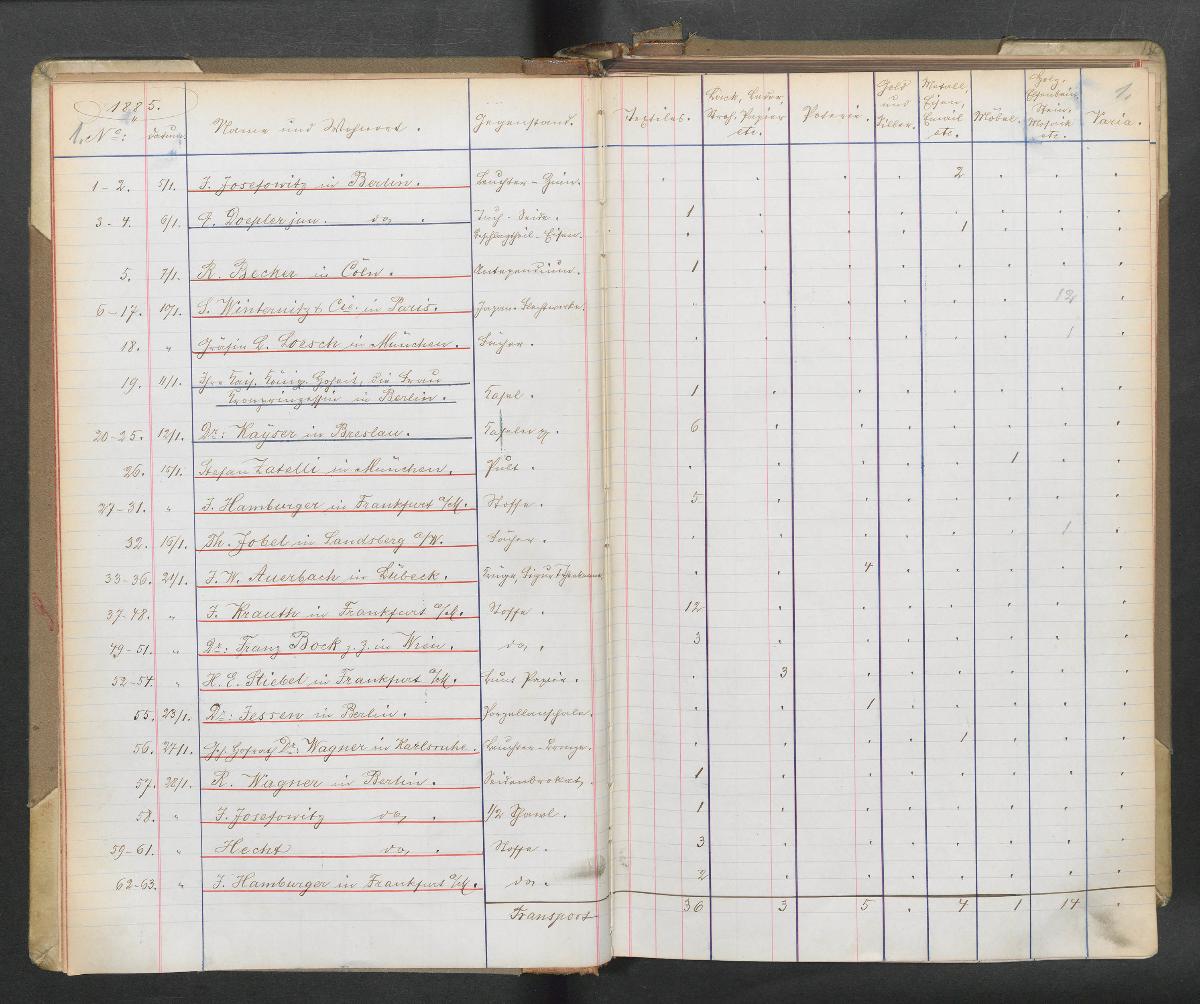 1885.
1. No: Datum. Name und Wohnort. Gegenstand. Textiles. Lack, Leder, Stroh, Papier etc. Poterie. Gold und Silber. Metall, Eisen, Email etc. Möbel. Holz, Elfenbein, Stein, Mosaik etc. Varia. 1.
1-2. 5/1. J. Josefowitz in Berlin. Leuchter-Zinn. 2
3-4. 6/1. Doepler jun. do. Tuch-Seide. 1
Beschlagtheil-Eisen. 1
5. 7/1. R. Becker in Cöln. Antependium. 1
6-17. 10/1. S. Winternitz & Cie. in Paris. Japan. Flechtwerke. 12
18. " Gräfin L. Loesch in München. Fächer. 1
19. 11/1. Ihre Kais. König. Hoheit, die Frau
Kronprinzessin in Berlin. Kasel. 1
20-25. 12/1. Dr: Kayser in Breslau. Kaseln 6
26. 15/1. Stefan Zatelli in München. Pult. 1
27-31. " J. Hamburger in Frankfurt a/M. Stoffe. 5
32. 16/1. Th. Jobel in Landsberg a/W. Fächer. 1
33-36. 21/1. J. W. Auerbach in Lübeck. Krüge, Figur 4
37-48. " J. Krauth in Frankfurt a/M. Stoffe. 12
49-51. " Dr: Franz Bock z. Z. in Wien. do. 3
52-54. " H. E. Stiebel in Frankfurt a/M. Bunt Papier. 3
55. 23/1. Dr: Jessen in Berlin. Porzellanschale. 1
56. 27/1. Geh. Hofrath Dr: Wagner in Karlsruhe. Leuchter-Bronze. 1
57. 28/1. R. Wagner in Berlin. Seidenbrokat. 1
58. " J. Josefowitz do. 1/2 Shawl. 1
59-61. " Hecht do. Stoffe. 3
62-63. " J. Hamburger in Frankfurt a/M. do. 2
Transport 36 3 5 . 4 1 14 .